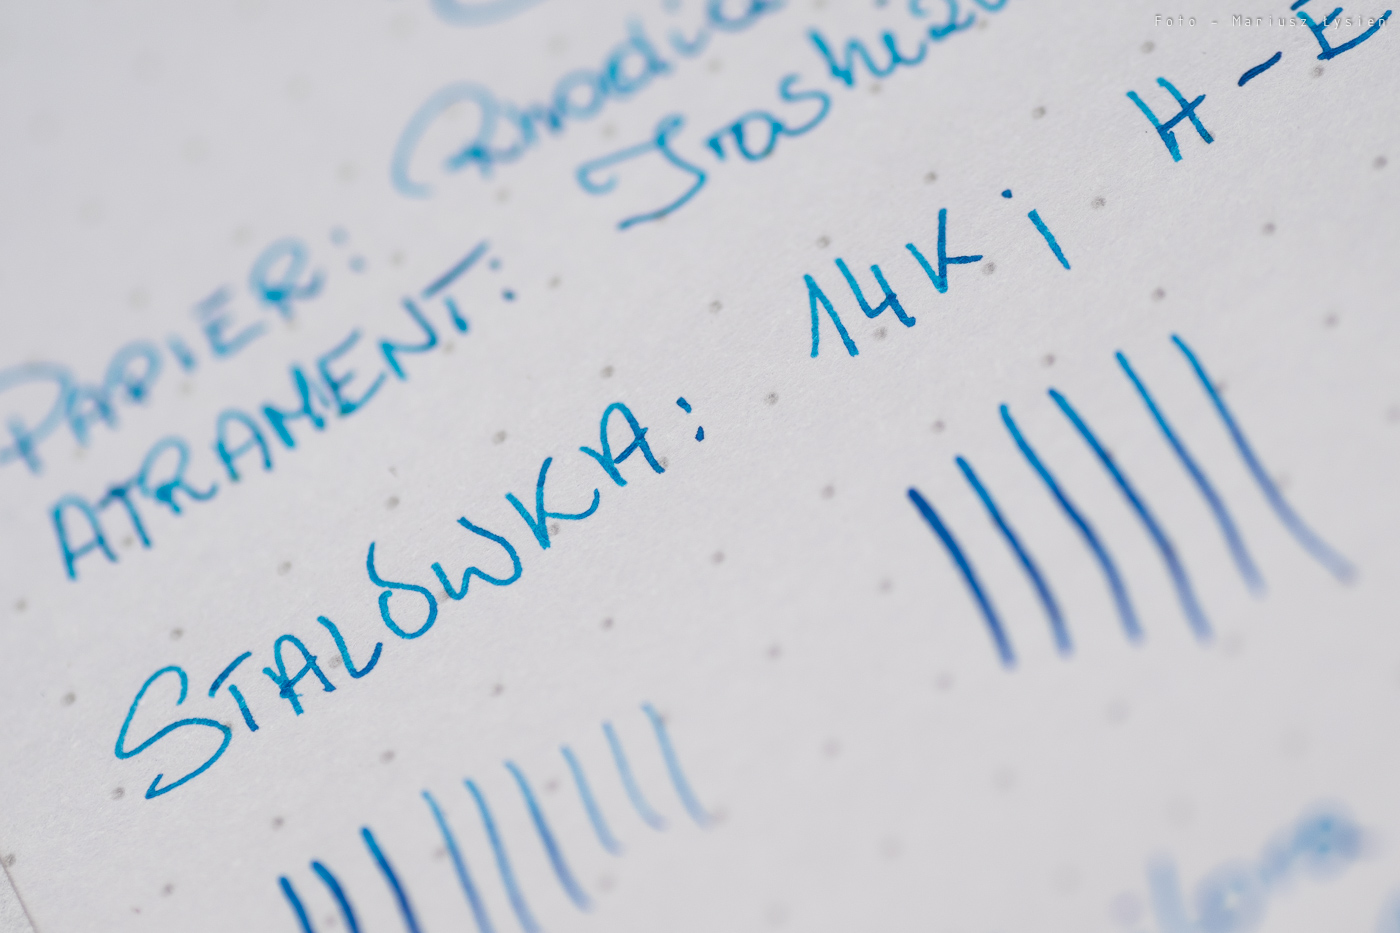 Foto - Mariusz Łysień
PAPIER: Rhodia
ATRAMENT: Iroshizu
STALÓWKA: 14K i H-E